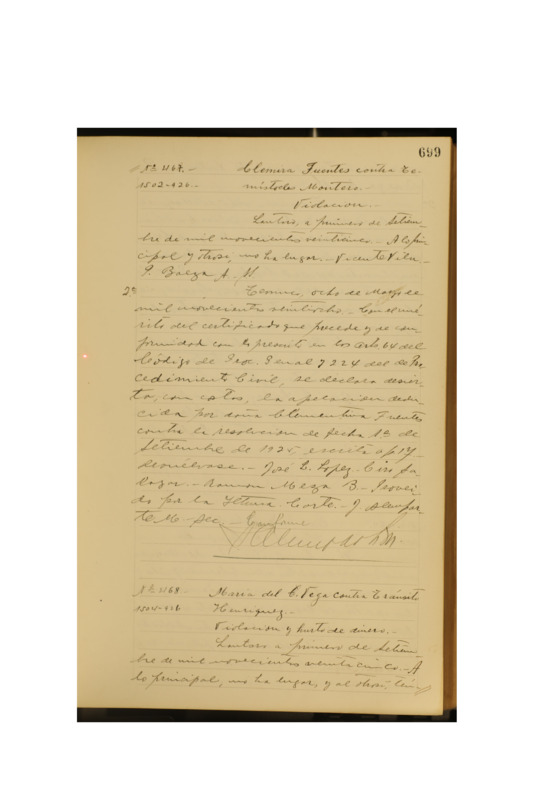 699
Nº 1167.- Clomira Fuentes contra Te-
1502-426.- místocles Montero.-
Violacion.-
Lautaro, a primero de Setiem-
bre de mil novecientos veinticinco.- A lo prin-
cipal y otrosí, no ha lugar.- Vicente Villa-
P. Baeza A., S.
2ª Temuco, ocho de Mayo de
mil novecientos veintiocho.- Con el mé-
rito del certificado que precede y de con-
formidad con lo prescrito en los arts 64 del
Código de Proc. Penal y 224 del de Pro-
cedimiento Civil, se declara desier-
ta, con costas, la apelacion dedu-
cida por doña Clementina Fuentes
contra la resolucion de fecha 1º de
Setiembre de 1925, escrita a f. 1
Devuélvase.- José L. Lopez.- Ciro Sa-
lazar.- Ramon Meza B.- Provei-
do por la Iltma Corte.-
Conforme
Nº 1168.- María del C. Vega contra Tránsito
1504-426 Henriquez.-
Violacion y hurto de dinero.-
Lautaro a primero de Setiem-
bre de mil novecientos veinticinco.- A
lo principal, no ha lugar, y al otrosí, tén-